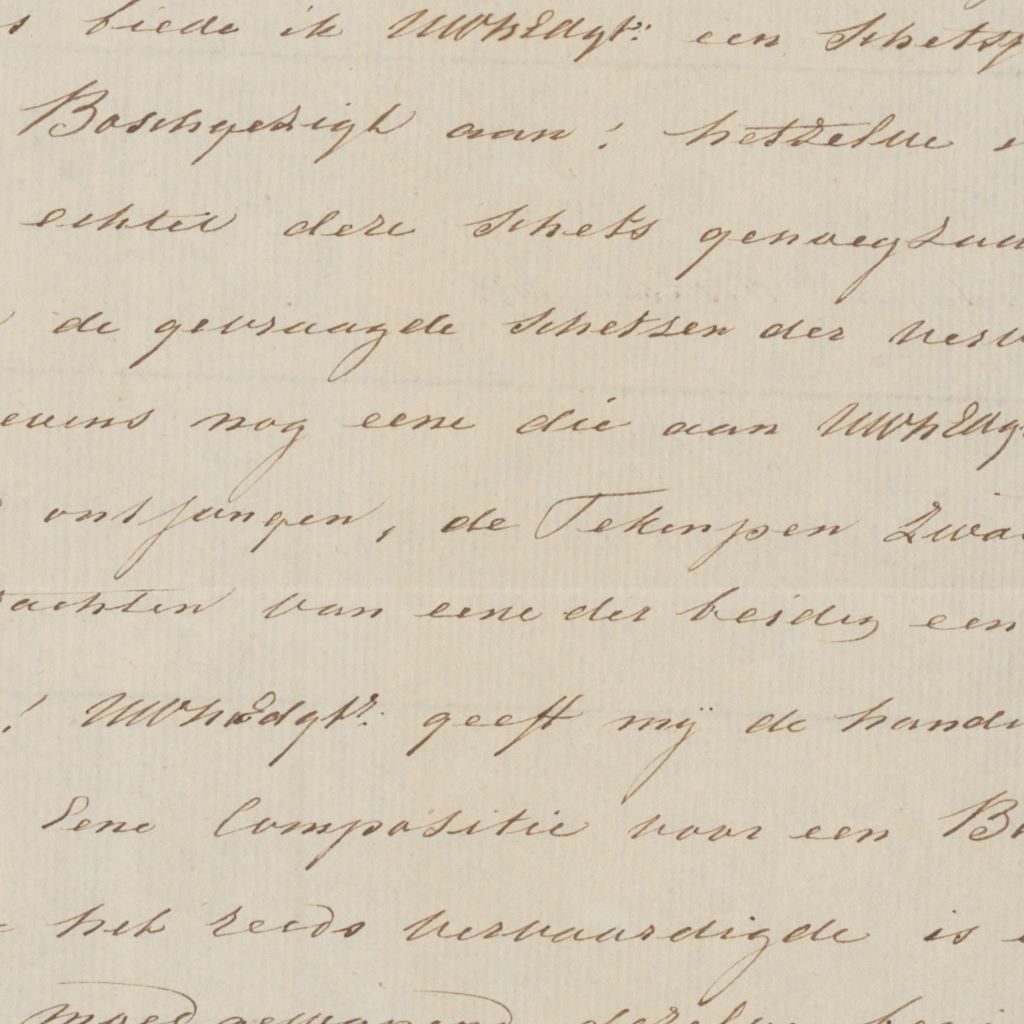 biede ik UWhEdgtr: een Schets
Boschgezigt aan! hetzelve
echter deze Schets genoegzaam
de gevraagde Schetsen der
evens nog eene die aan UWhEdg
ontfangen, de Tekenpen
achten van eene der beiden een
! UWhEdgtr: geeft mij de
Eene Compositie voor een
het reeds vervaardigde is
moed gewapend dezelve